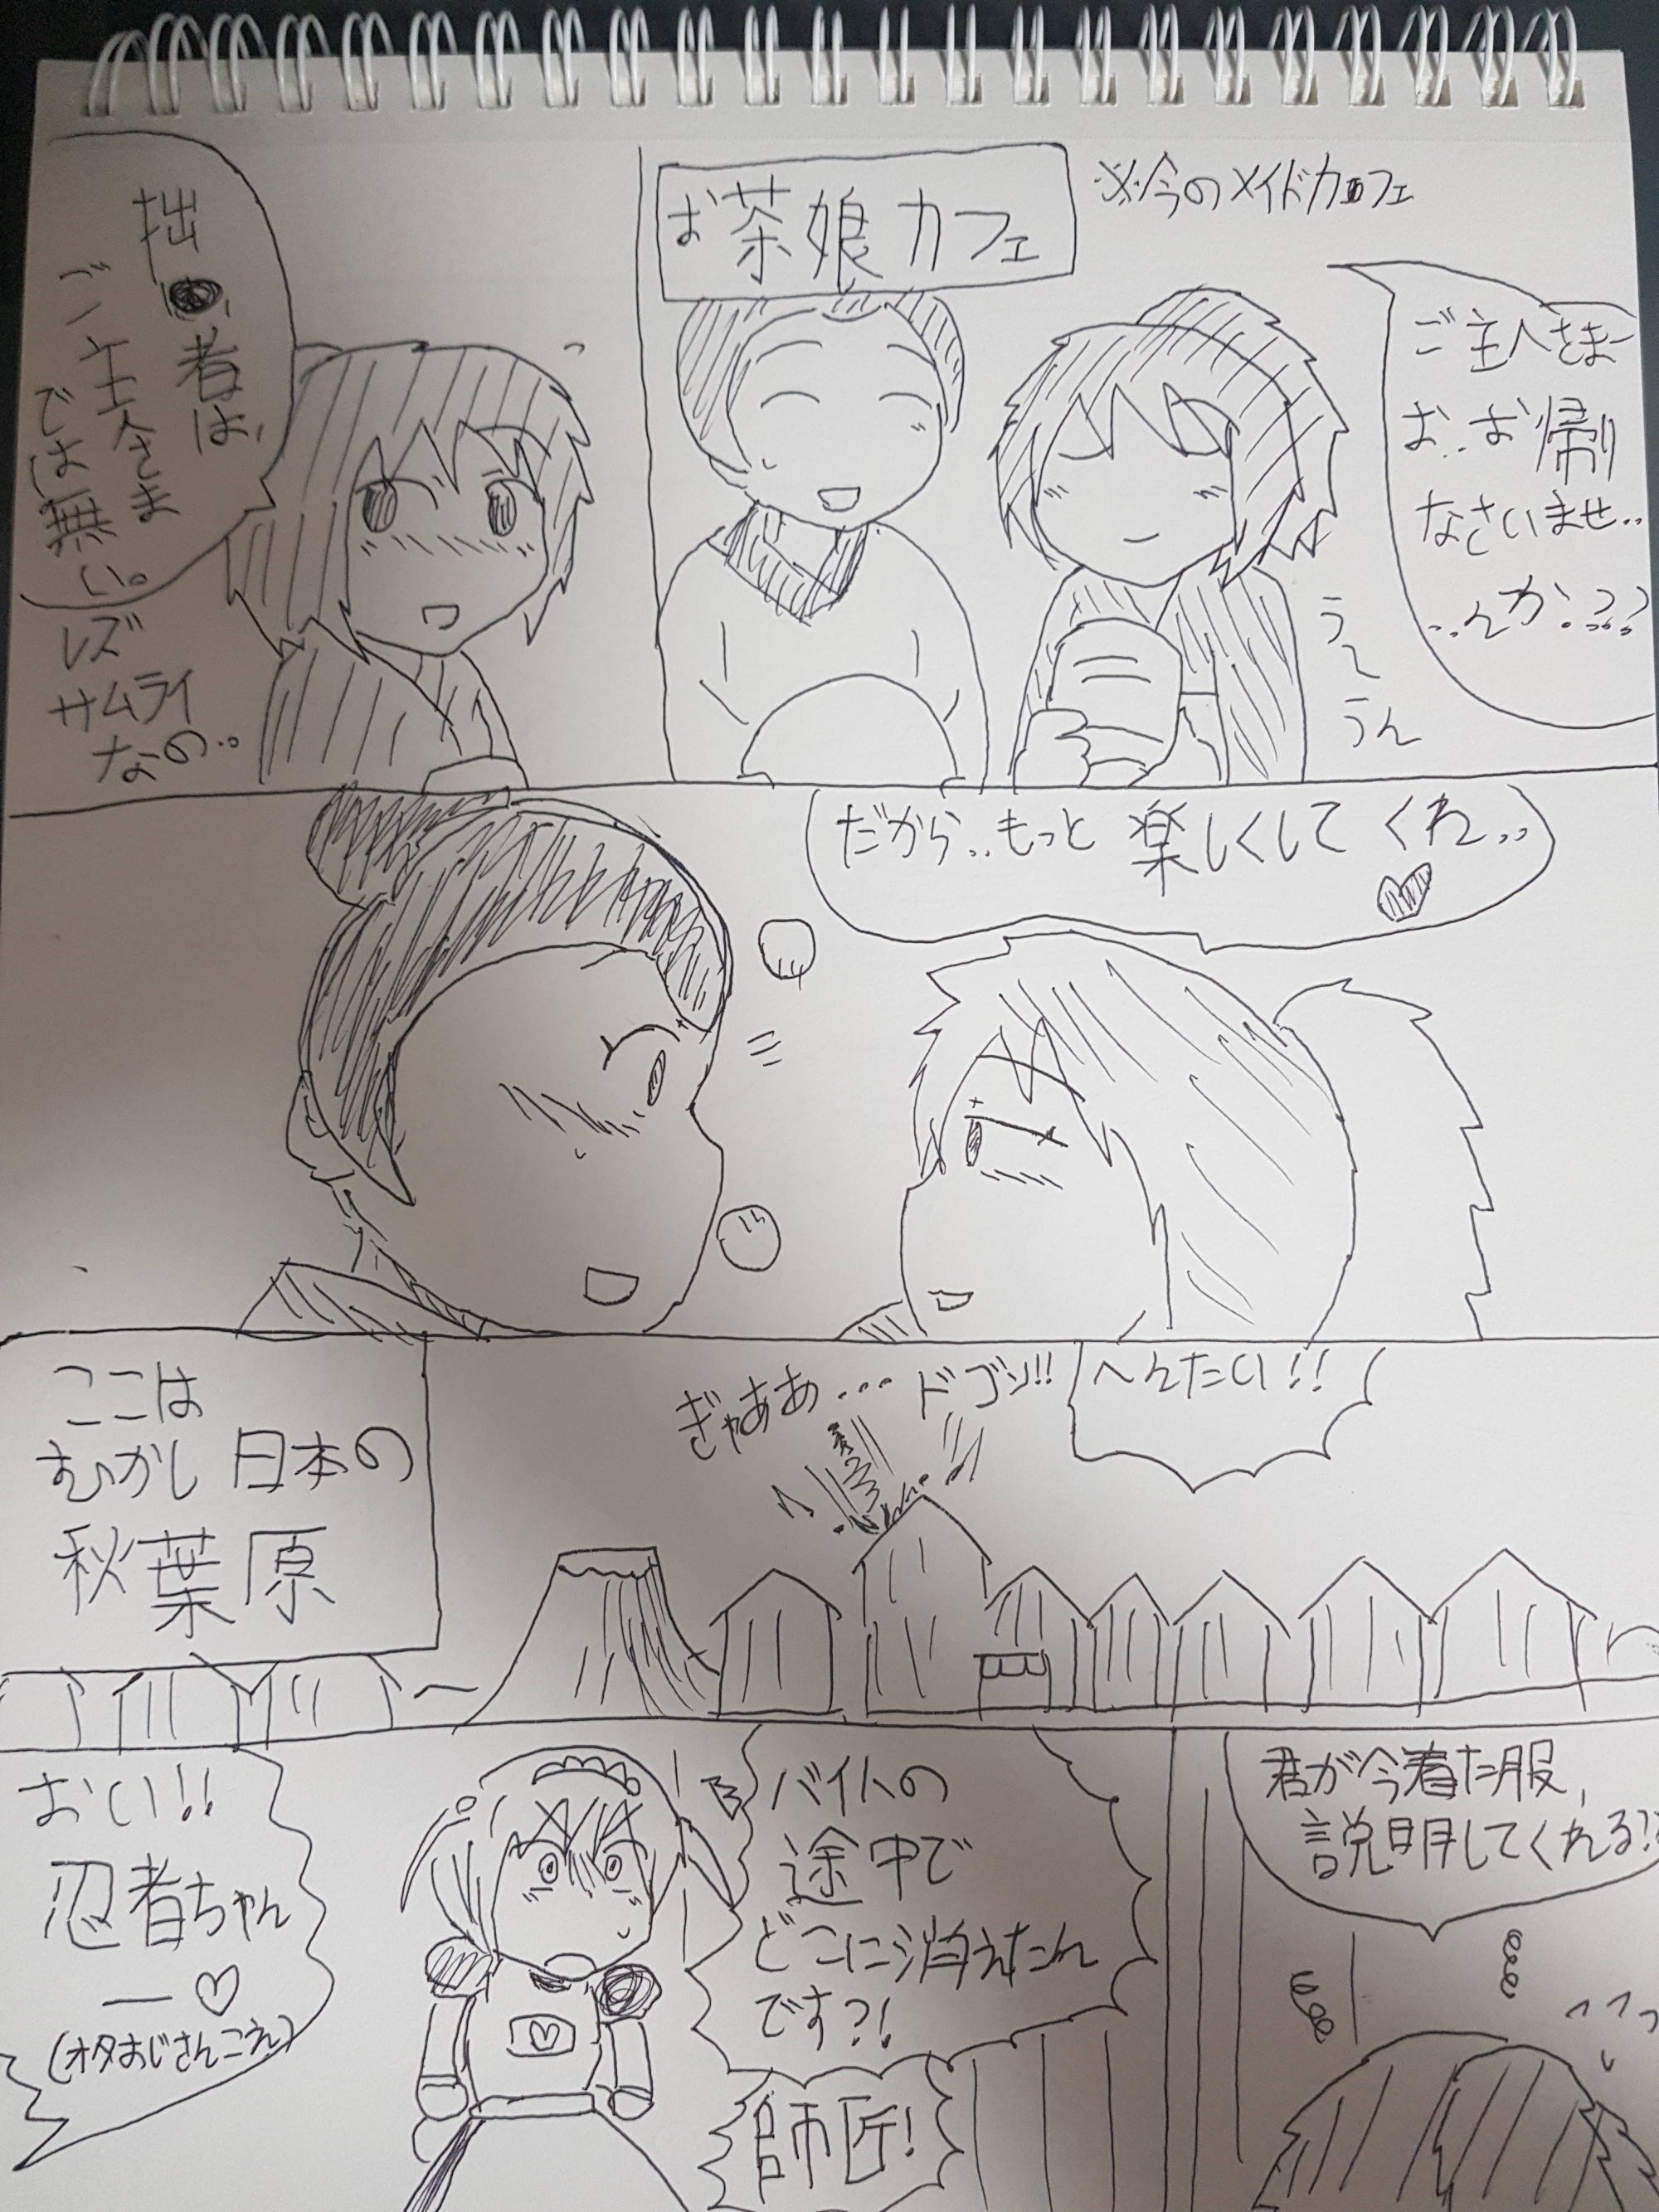 ※今のメイドカフェ
お茶娘カフェ
ご主人さまー
お..お帰り
なさいませ..
..んか.???
う〜
うん
拙者は、
ご主人さま
では無い。
レズ
サムライ
なの..
だから..もっと楽しくしてくれ..
へんたい!!
ドゴン!!
ぎゃああ...
ここは
むかし日本の
秋葉原
君が今着た服,
説明してくれる!?
バイトの
途中で
どこに消えたん
です?!
師匠!
おい!!
忍者ちゃん
ー♡
(オタおじさんこえ)